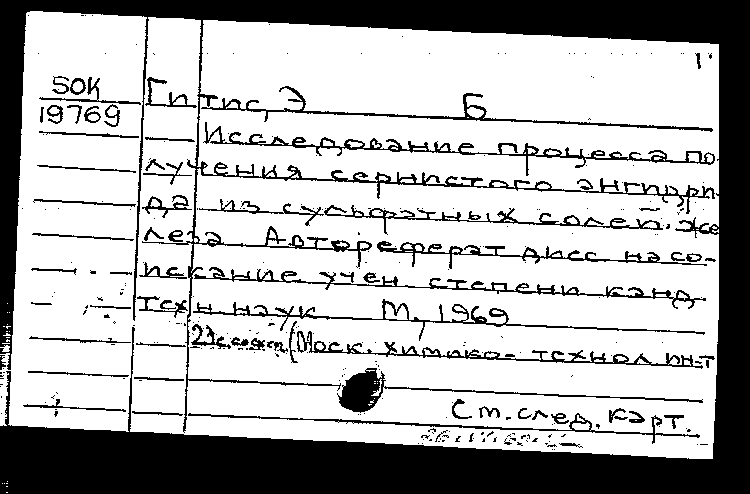 1
50К Гитис, Э Б
19769
Исследование процесса по-
лучения сернистого ангидри-
да из сульфатных солей. же
леза. Автореферат дисс. на со-
искание учен степени канд
техн. наук. М., 1969
(Моск. химико-технол ин-т
См. след. карт.